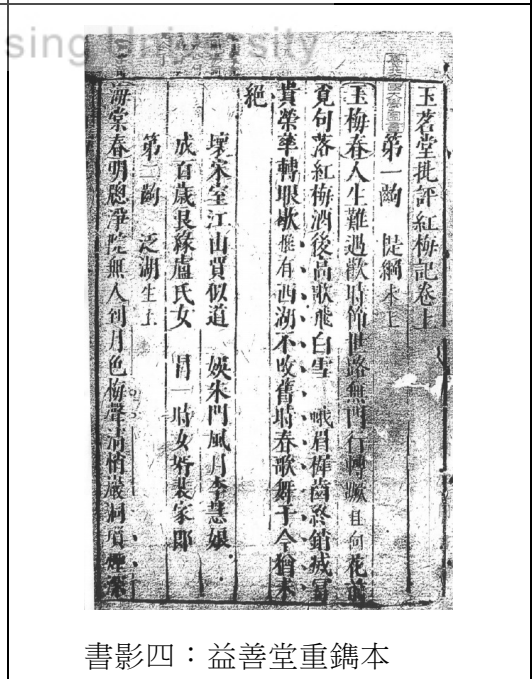 sing University
玉茗堂批評紅梅記卷上
第一齣 提綱末上
玉梅春人生難過歡時節世路無門行轉蹶且向花前
覓句落紅梅酒後高歌飛白雪 蛾眉犀齒終銷滅富
貴榮華轉眼歇惟有西湖不改舊時春歌舞于今猶未
絕
壞宋室江山賈似道 娛朱門風月李慧娘
成百歲良緣盧氏女 冒一時女婿裴家郎
第二齣 泛湖生上
海棠春明牕淨院無人到月色梅聲清悄巖洞
書影四：益善堂重鐫本